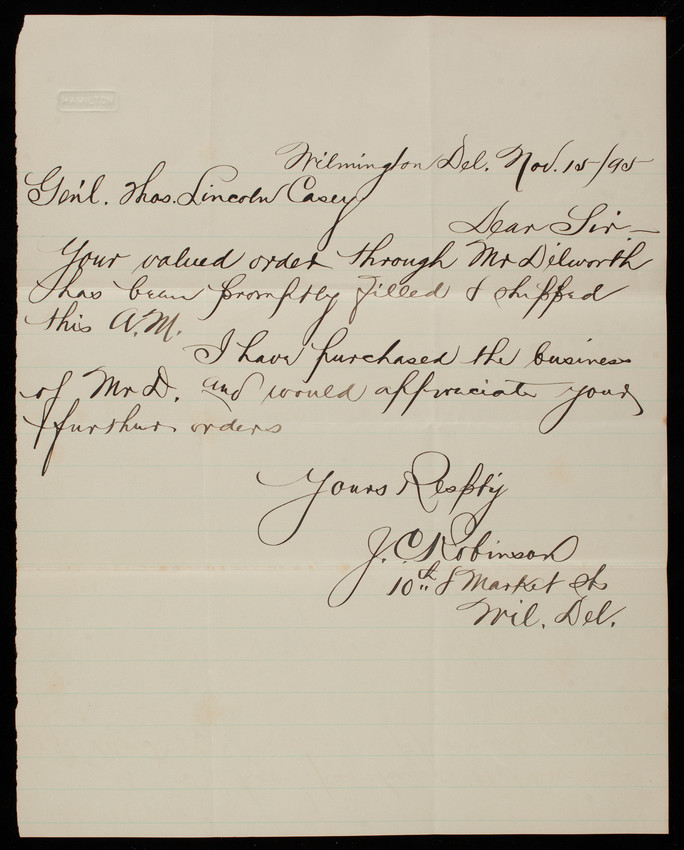 HAMILTON
Wilmington Del. Nov. 15/95
Gen'l. Thos. Lincoln Casey
Dear Sir—
Your valued order through Mr Dilworth
has been promptly filled & shipped
this A.M.
I have purchased the business
of Mr D. and would appreciate your
further orders
Yours Respt'y
J. C. Robinson
10th & Market Sts
Wil. Del.